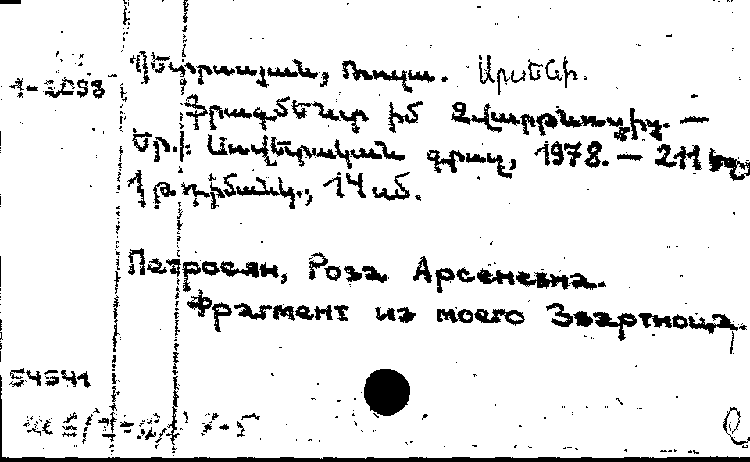 Պետրոսյան, Ռոզա. Արսենի.
1-2093
Ֆրագմենտ իմ Զվարթնոցից. —
Եր.: Սովետական գրող, 1978. — 211 էջ,
1 թ. դիմանկ., 14 սմ.
Петросян, Роза Арсеневна.
Фрагмент из моего Звартноца.
54541